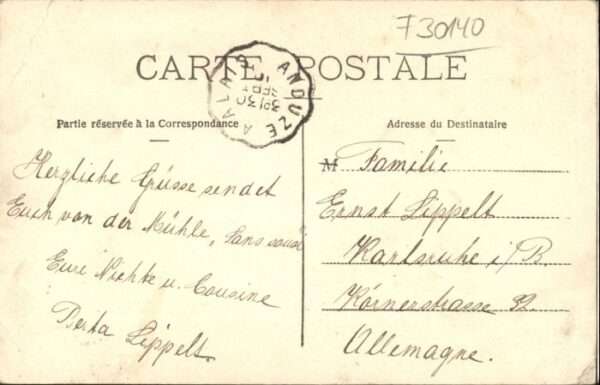 730140
CARTE POSTALE
ANDUZE A ALAIS
3E 30
SEPT
Partie réservée à la Correspondance
Adresse du Destinataire
Herzliche Grüsse sendet
Euch von der Mühle, Sans souci
Eure Nichte u. Cousine
Berta Lippelt.
M Familie
Ernst Lippelt
Karlsruhe i/B.
Körnerstrasse 32.
Allemagne.